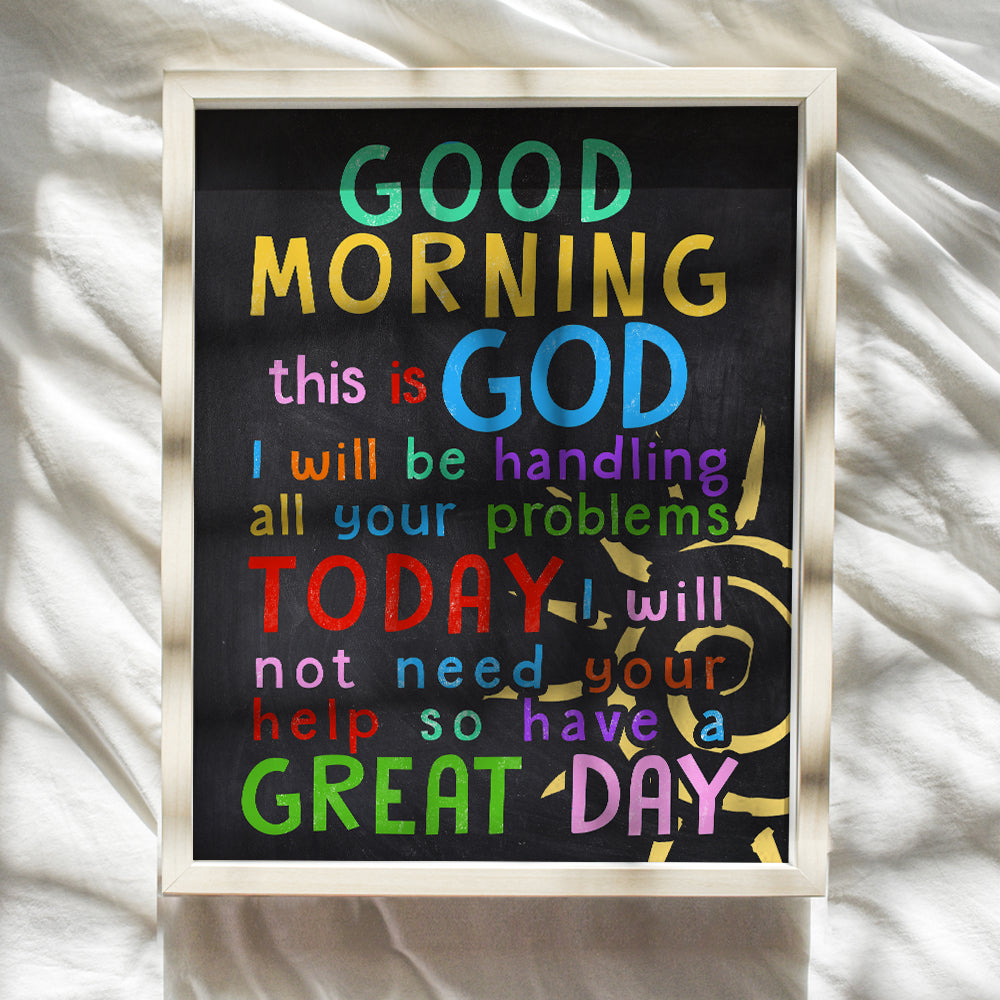 GOOD
MORNING
this is GOD
I will be handling
all your problems
TODAY I will
not need your
help so have a
GREAT DAY